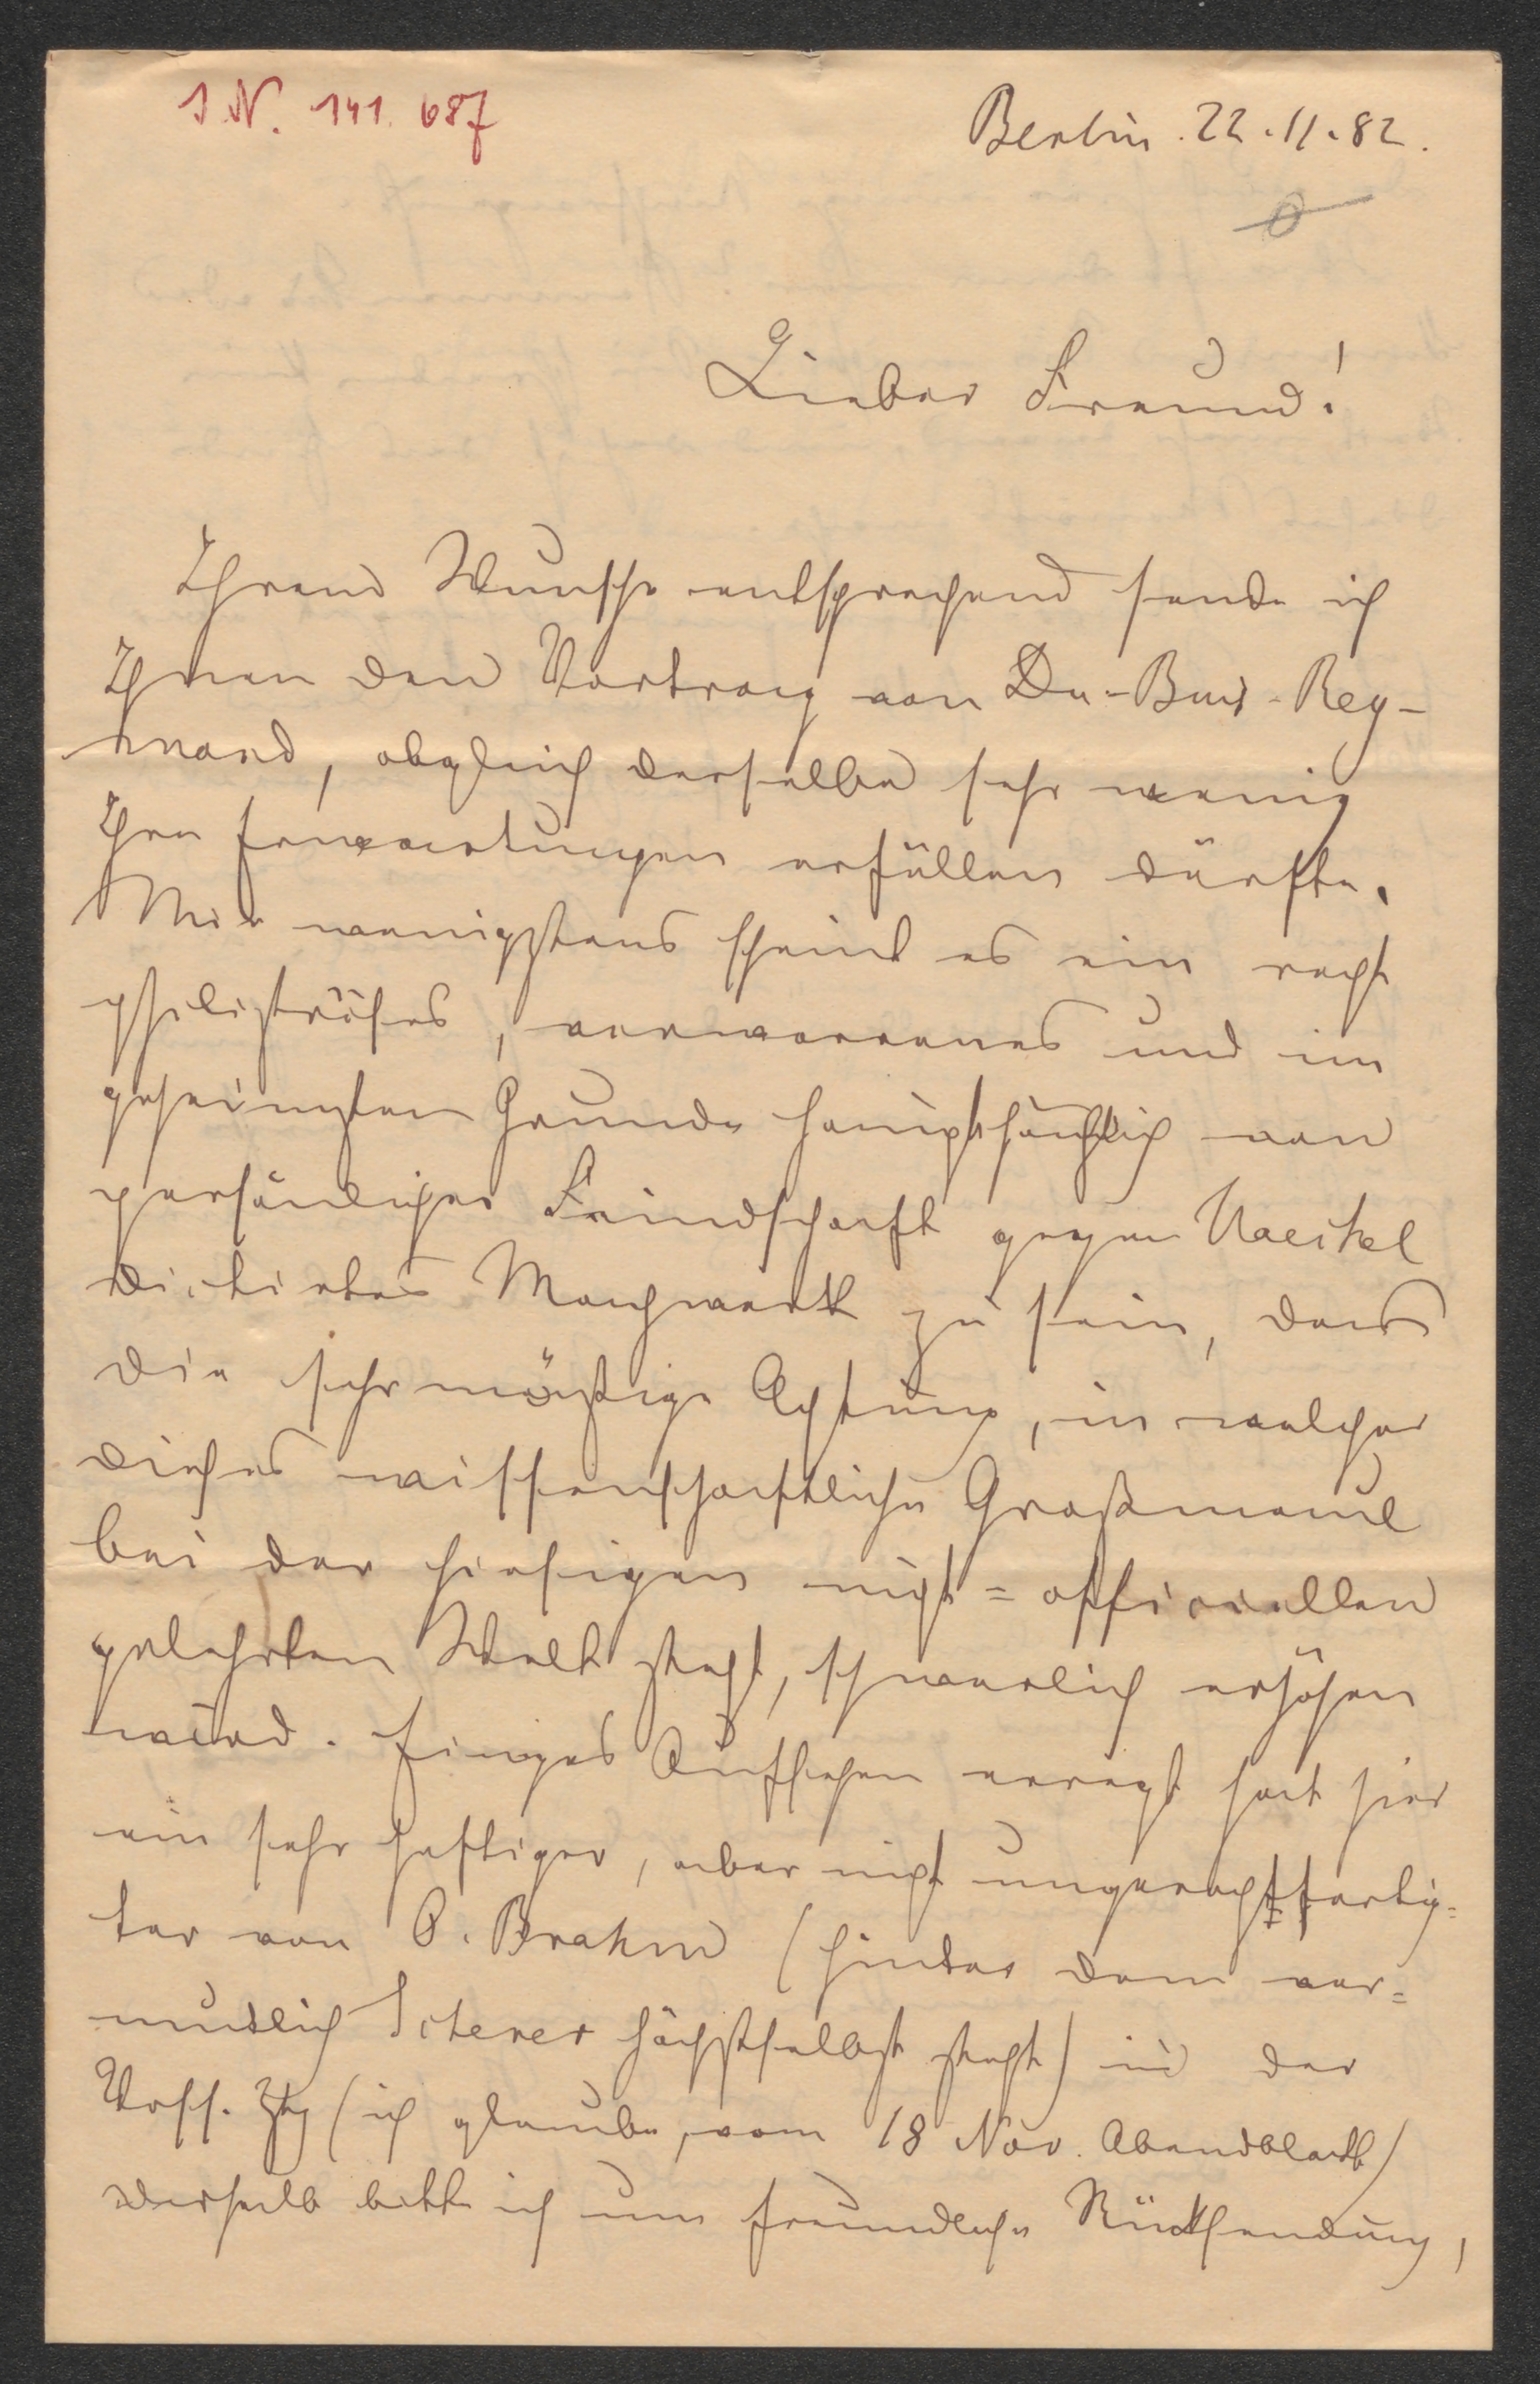 I.N. 141.687
Berlin. 22.11.82.
Lieber Freund!
Ihrem Wunsche entsprechend sende ich
Ihnen den Vortrag von Du-Bois-Rey-
mond, obgleich derselbe sehr wenig
Ihre Erwartungen erfüllen dürfte.
Mir wenigstens scheint es ein recht
philiströses, verworrenes und im
geheimsten Grunde hauptsächlich von
persönlicher Feindschaft gegen Haeckel
dictirtes Machwerk zu sein, das
die sehr mäßige Achtung, in welcher
dieses wissenschaftliche Großmaul
bei der hiesigen nicht=officiellen
gelehrten Welt steht, schwerlich erhöhen
wird. Einiges Aufsehen erregt hat hier
ein sehr heftiger, aber nicht ungerechtfertig=
ter von O. Brahm (hinter dem ver=
mutlich Scherer höchstselbst steht) in der
Voss. Ztg (ich glaube, vom 18 Nov. Abendblatt)
deshalb bitte ich um freundliche Rücksendung,